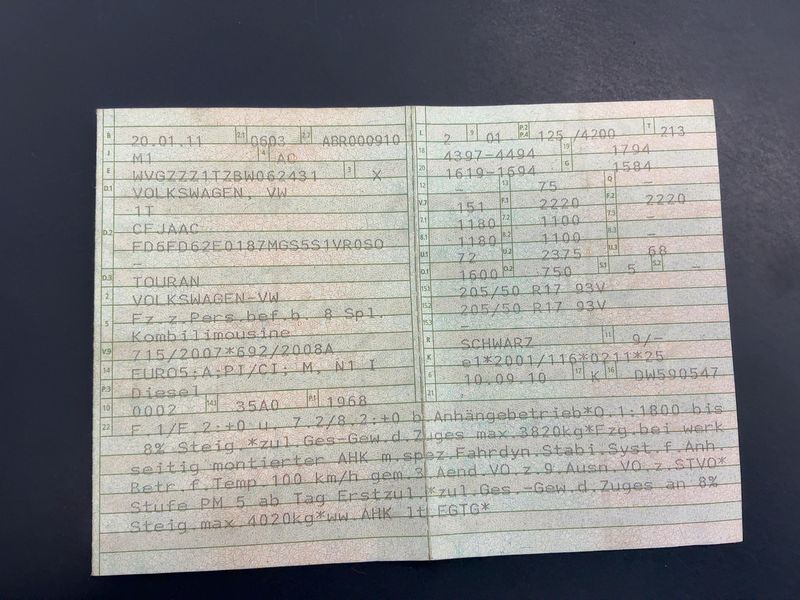 B 20.01.11 2.1 0603 2.2 ABR000910
J M1 4 AC
E WVGZZZ1TZBW062431 3 X
D.1 VOLKSWAGEN, VW
1T
D.2 CFJAAC
FD6FD62E0187MGS5S1VR0S0
–
D.3 TOURAN
2 VOLKSWAGEN-VW
5 Fz.z.Pers.bef.b. 8 Spl.
Kombilimousine
V.9 715/2007*692/2008A
14 EURO5;A;PI/CI; M, N1 I
P.3 Diesel
10 0002 14.1 35A0 P.1 1968
L 2 9 01 P.2 P.4 125 /4200 T 213
18 4397-4494 19 1794
20 1619-1694 G 1584
12 – 13 75 Q –
V.7 151 F.1 2220 F.2 2220
7.1 1180 7.2 1100 7.3 –
8.1 1180 8.2 1100 8.3 –
U.1 72 U.2 2375 U.3 68
O.1 1600 O.2 750 S.1 5 S.2 –
15.1 205/50 R17 93V
15.2 205/50 R17 93V
15.3 –
R SCHWARZ 11 9/–
K e1*2001/116*0211*25
6 10.09.10 17 K 16 DW590547
21
22 F 1/F 2:+0 u. 7.2/8.2:+0 b.Anhängebetrieb*O.1:1800 bis
8% Steig.*zul.Ges-Gew.d.Zuges max.3820kg*Fzg.bei werk
seitig montierter AHK m.spez.Fahrdyn.Stabi.Syst.f.Anh.
Betr.f.Temp.100 km/h gem.3.Aend.VO.z.9.Ausn.VO.z.STVO*
Stufe PM 5 ab Tag Erstzul.*zul.Ges.-Gew.d.Zuges an 8%
Steig.max.4020kg*ww.AHK lt.EGTG*